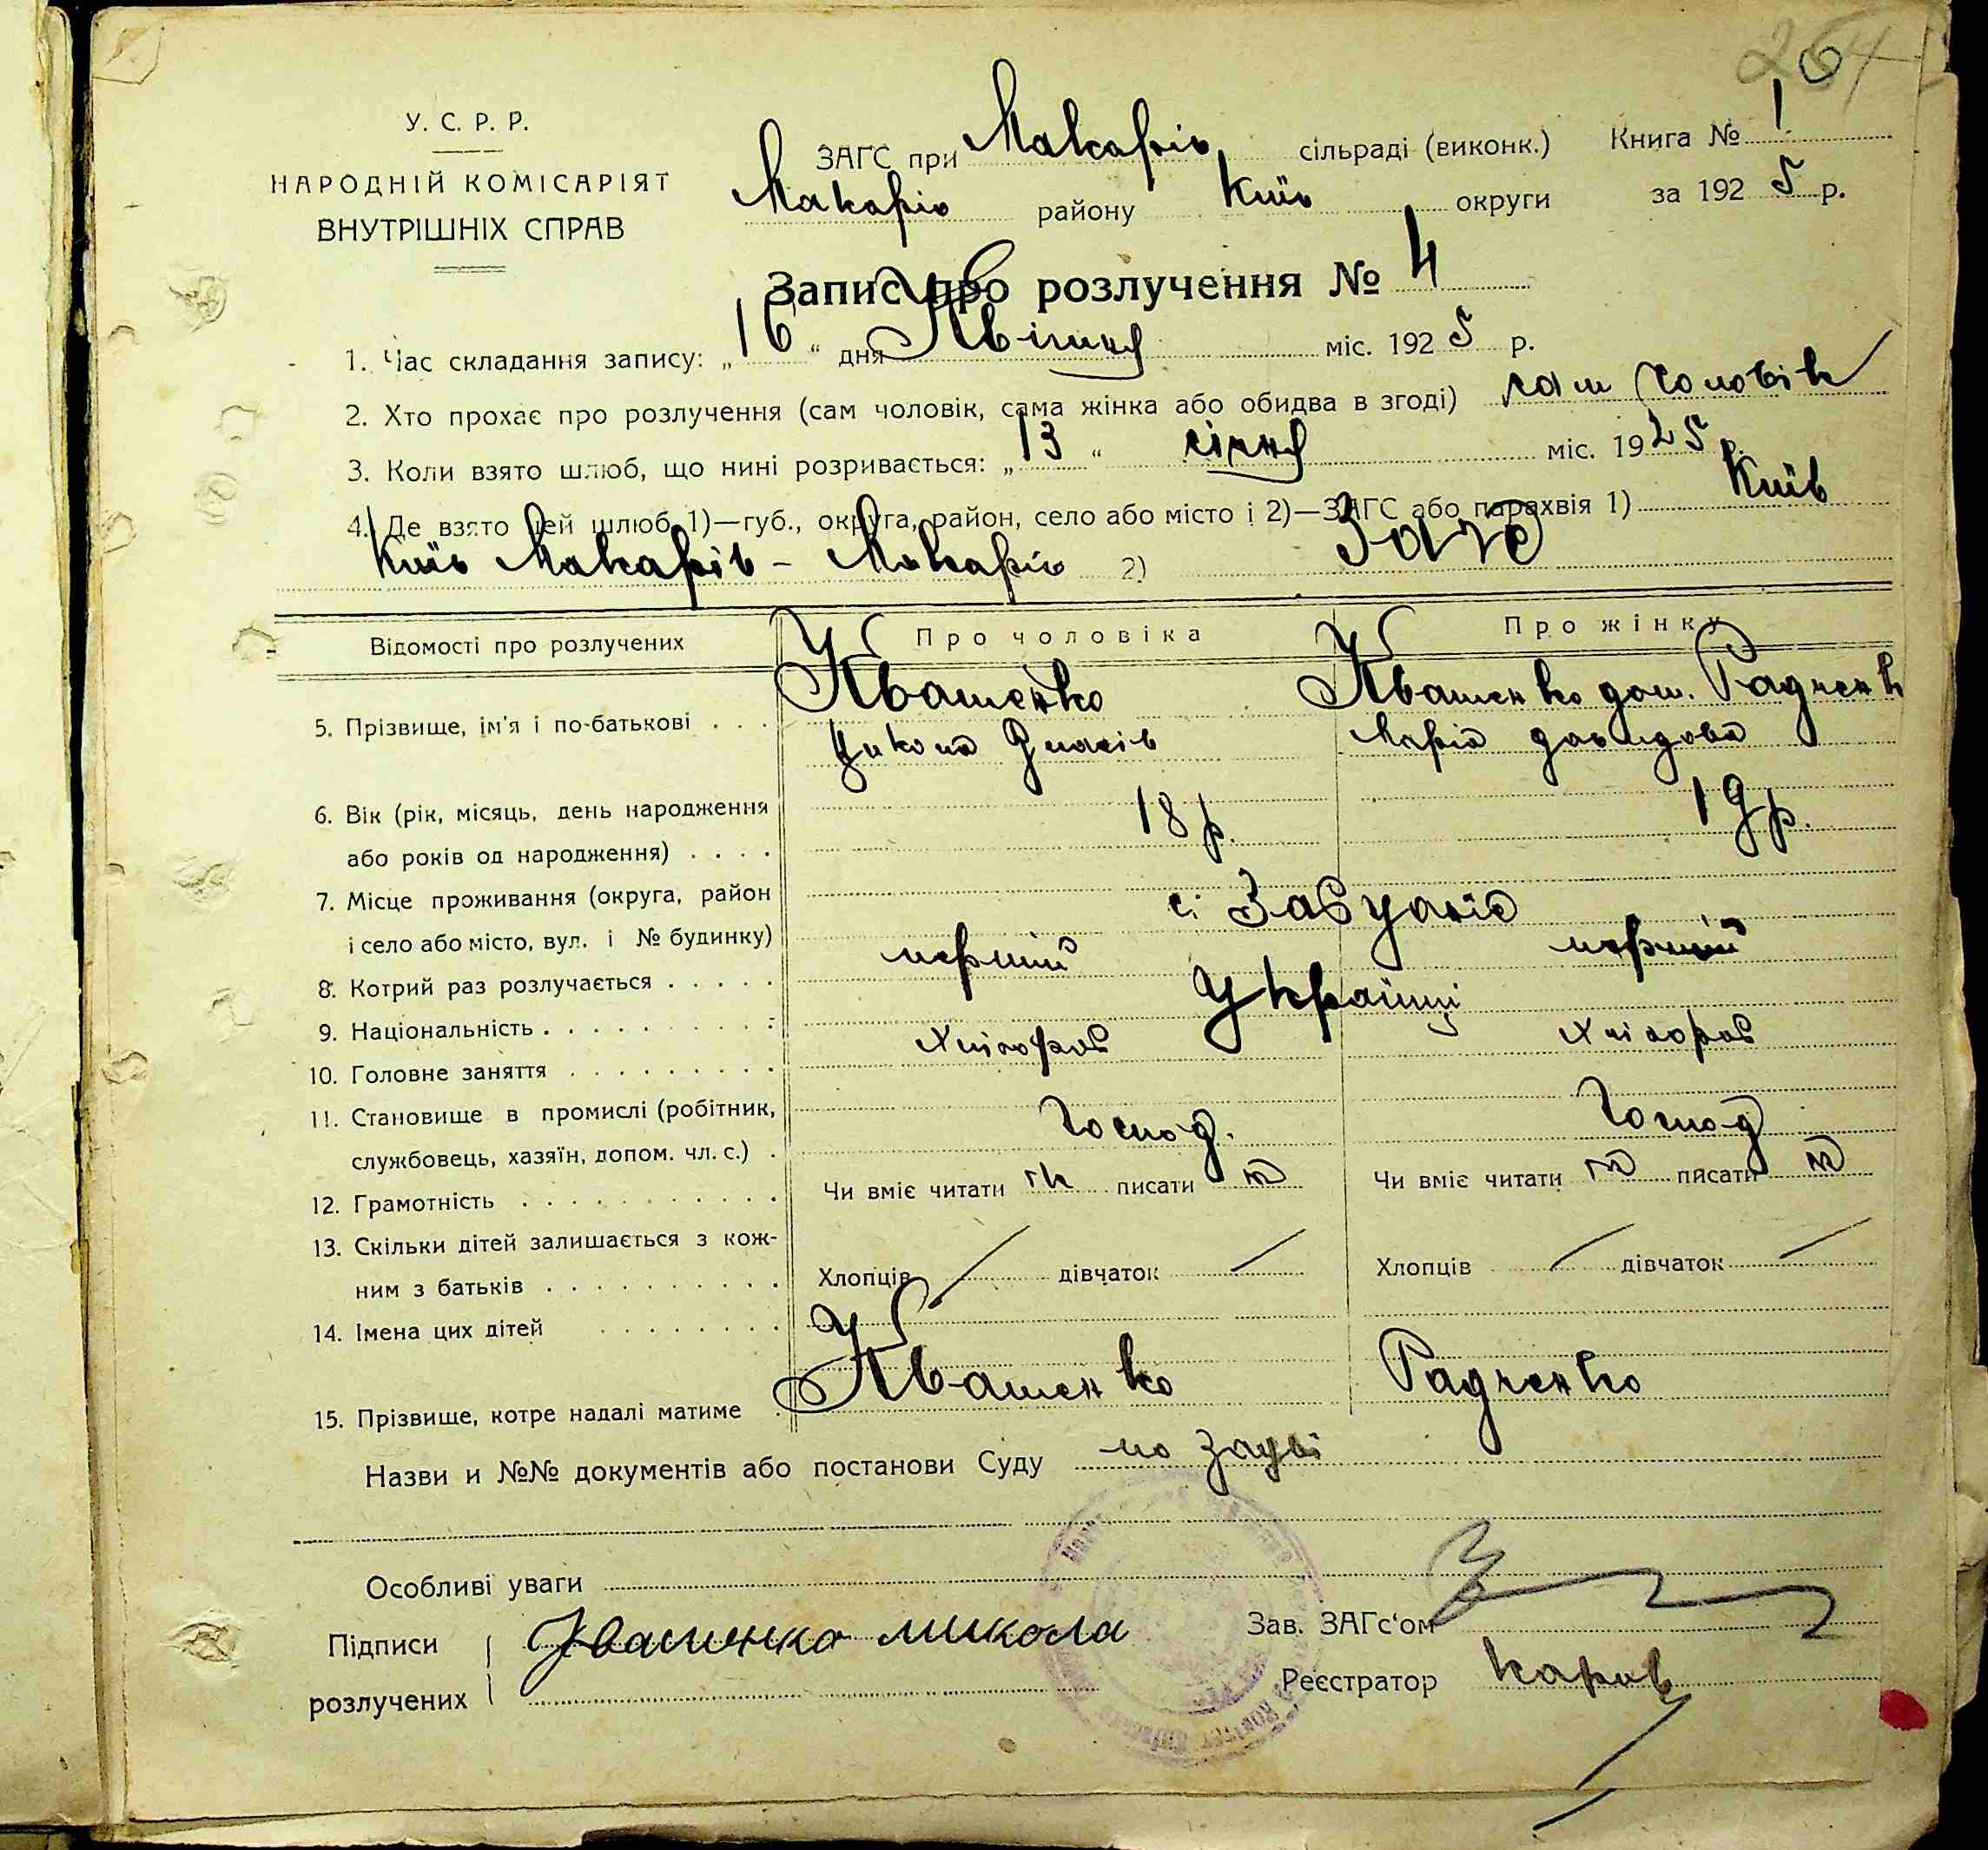 264
У. С. Р. Р.
НАРОДНІЙ КОМІСАРІЯТ
ВНУТРІШНІХ СПРАВ
ЗАГС при Макарів сільраді (виконк.) Книга № 1
Макарів району Київ округи за 1925 р.
Запис про розлучення № 4
1. Час складання запису: „16“ дня Квітня міс. 1925 р.
2. Хто прохає про розлучення (сам чоловік, сама жінка або обидва в згоді) сам чоловік
3. Коли взято шлюб, що нині розривається: „13“ січня міс. 1925 р.
4. Де взято цей шлюб 1)—губ., округа, район, село або місто і 2)—ЗАГС або парахвія 1) Київ
Київ Макарів - Макарів 2) Загс
Відомості про розлучених Про чоловіка Про жінку
Квашенко Квашенко дош. Радченк
5. Прізвище, ім'я і по-батькові . . .
Микола Марія давидова
6. Вік (рік, місяць, день народження 18 р. 19 р.
або років од народження) . . . .
7. Місце проживання (округа, район с. Забуянє
і село або місто, вул. і № будинку) перший перший
8. Котрий раз розлучається . . . . . Україці
9. Національність . . . . . . . . . .
Хлібороб Хлібороб
10. Головне заняття . . . . . . . . .
11. Становище в промислі (робітник, Господ. Господ
службовець, хазяїн, допом. чл. с.) .
12. Грамотність . . . . . . . . . . . Чи вміє читати писати Чи вміє читати писати
13. Скільки дітей залишається з кож-
ним з батьків . . . . . . . . . . Хлопців / дівчаток / Хлопців / дівчаток /
14. Імена цих дітей . . . . . . . .
15. Прізвище, котре надалі матиме . Квашенко Радченко
Назви и №№ документів або постанови Суду по заяві
Особливі уваги
Підписи Квашенко микола Зав. ЗАГс'ом
розлучених Реєстратор